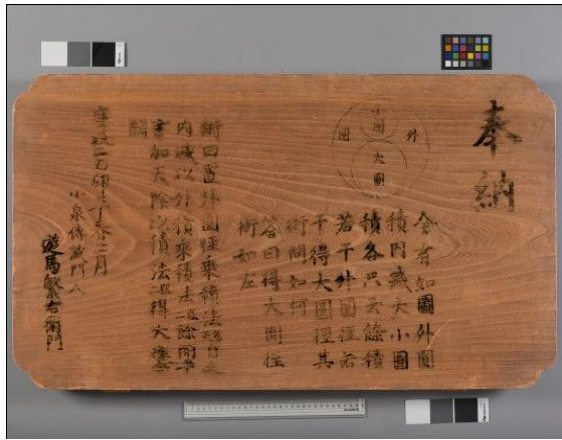 奉納
外圓
小圓
大圓
今有如圖外圓
積内減大小圓
積各只云餘積
若干外圓徑若
干得大圓徑其
術問如何
答曰得大圓徑
術如左
術曰置外圓徑乗積法
内減以外積乗積法餘開平
加天除以積法得大
三月
小泉傳蔵門人
遊馬繁右衛門